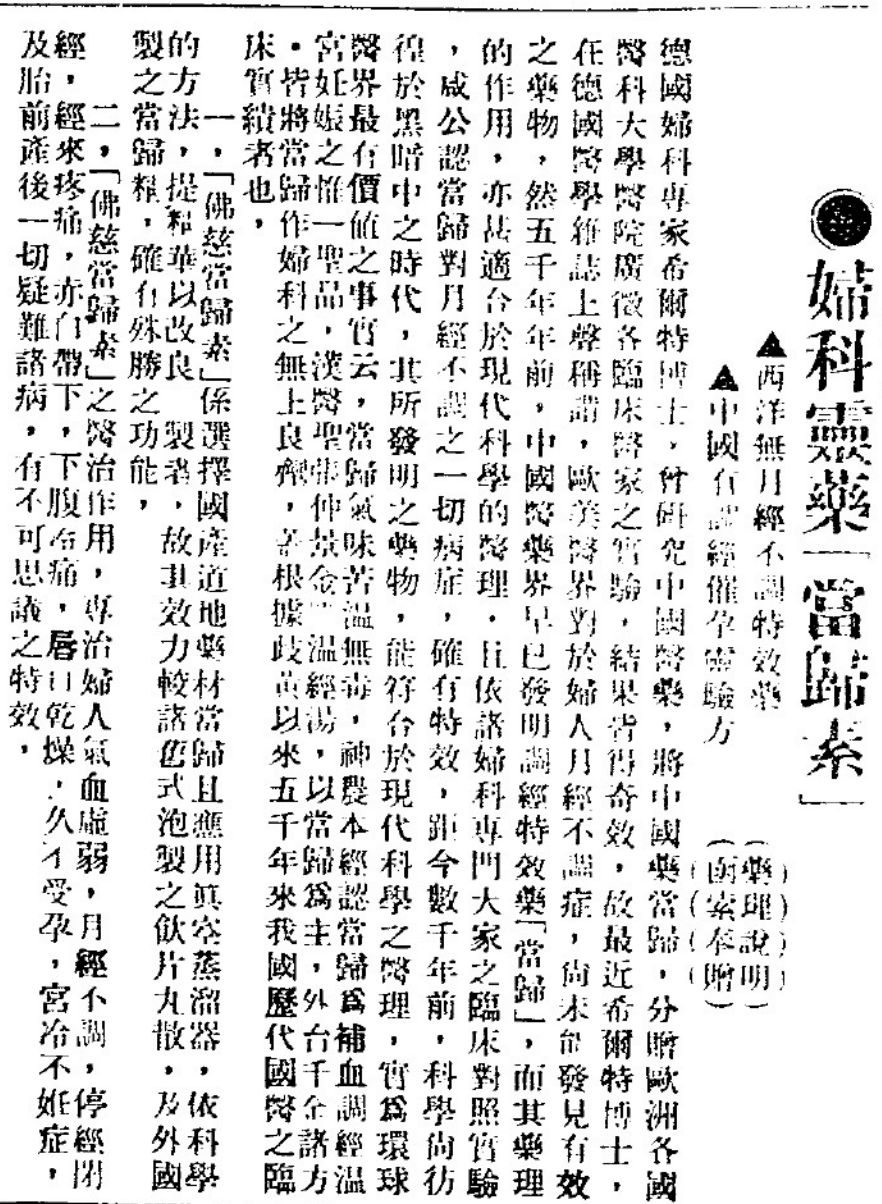 婦科靈藥「當歸素」
▲西洋無月經不調特效藥
▲中國有調經催孕靈驗方
(藥理說明)
(函索奉贈)
德國婦科專家希爾特博士，曾研究中國醫藥，將中國藥當歸，分贈歐洲各國
醫科大學醫院廣徵各臨床醫家之實驗，結果皆得奇效，故最近希爾特博士，
在德國醫學雜誌上聲稱謂，歐美醫界對於婦人月經不調症，尙未能發見有效
之藥物，然五千年年前，中國醫藥界早已發明調經特效藥「當歸」，而其藥理
的作用，亦甚適合於現代科學的醫理，且依諸婦科專門大家之臨床對照實驗
，咸公認當歸對月經不調之一切病症，確有特效，距今數千年前，科學尙彷
徨於黑暗中之時代，其所發明之藥物，能符合於現代科學之醫理，實爲環球
醫界最有價値之事實云，當歸氣味苦溫無毒，神農本經認當歸爲補血調經溫
宮妊娠之惟一聖品，漢醫聖張仲景金匱溫經湯，以當歸爲主，外台千金諸方
，皆將當歸作婦科之無上良劑，蓋根據歧黃以來五千年來我國歷代國醫之臨
床實績者也，
一，「佛慈當歸素」係選擇國產道地藥材當歸且應用眞空蒸溜器，依科學
的方法，提精華以改良 製者，故其效力較諸舊式泡製之飲片丸散，及外國
製之當歸精，確有殊勝之功能，
二，「佛慈當歸素」之醫治作用，專治婦人氣血虛弱，月經不調，停經閉
經，經來疼痛，赤白帶下，下腹冷痛，唇口乾燥，久不受孕，宮冷不妊症，
及胎前產後一切疑難諸病，有不可思議之特效，